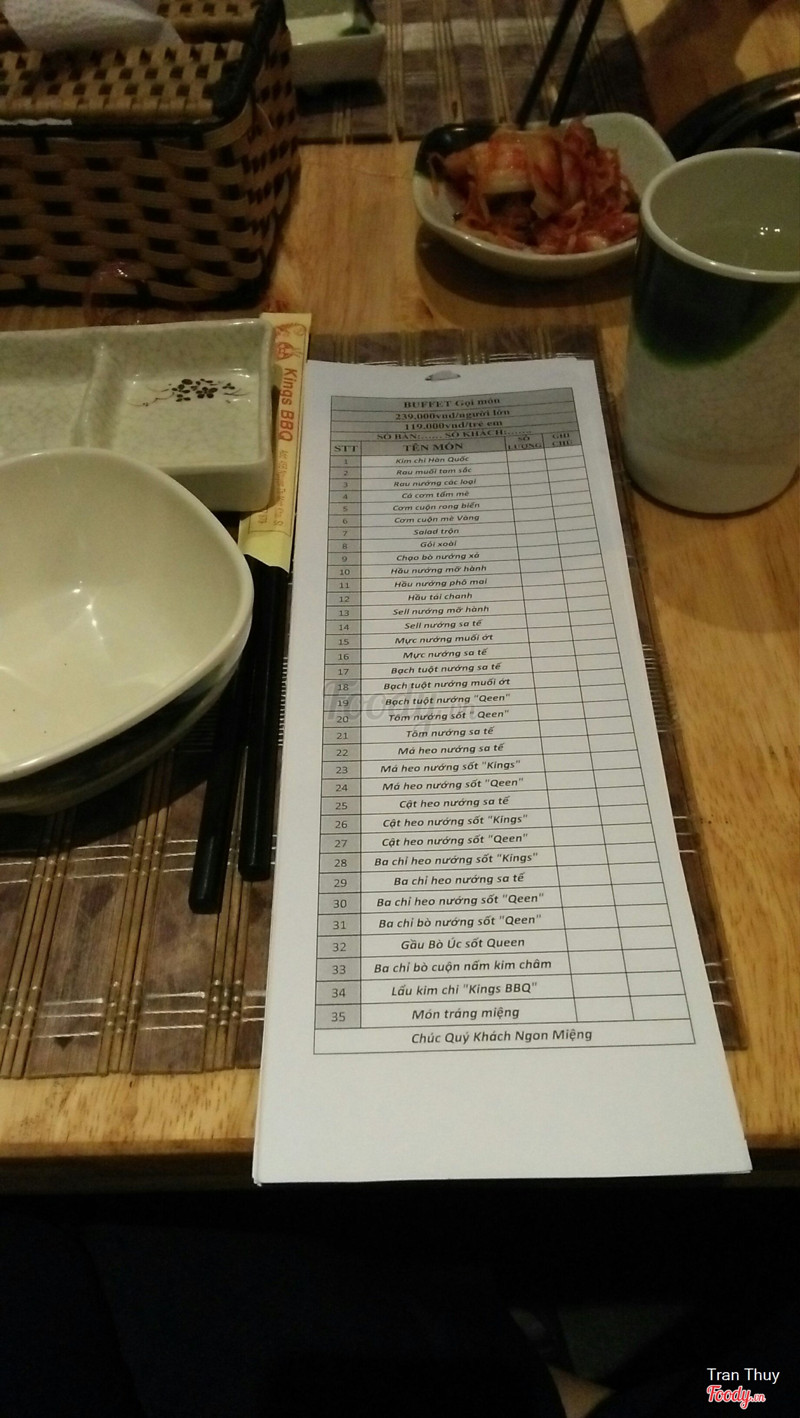 Kings BBQ
BUFFET Gọi món
239.000vnđ/người lớn
119.000vnđ/trẻ em
SỐ BÀN:...... SỐ KHÁCH:......
STT TÊN MÓN SỐ LƯỢNG GHI CHÚ
1 Kim chi Hàn Quốc
2 Rau muối tam sắc
3 Rau nướng các loại
4 Cá cơm tẩm mè
5 Cơm cuộn rong biển
6 Cơm cuộn mè Vàng
7 Salad trộn
8 Gỏi xoài
9 Chạo bò nướng xả
10 Hầu nướng mỡ hành
11 Hầu nướng phô mai
12 Hầu tái chanh
13 Sell nướng mỡ hành
14 Sell nướng sa tế
15 Mực nướng muối ớt
16 Mực nướng sa tế
17 Bạch tuột nướng sa tế
18 Bạch tuột nướng muối ớt
19 Bạch tuột nướng "Qeen"
20 Tôm nướng sốt "Qeen"
21 Tôm nướng sa tế
22 Má heo nướng sa tế
23 Má heo nướng sốt "Kings"
24 Má heo nướng sốt "Qeen"
25 Cật heo nướng sa tế
26 Cật heo nướng sốt "Kings"
27 Cật heo nướng sốt "Qeen"
28 Ba chỉ heo nướng sốt "Kings"
29 Ba chỉ heo nướng sa tế
30 Ba chỉ heo nướng sốt "Qeen"
31 Ba chỉ bò nướng sốt "Qeen"
32 Gầu Bò Úc sốt Queen
33 Ba chỉ bò cuộn nấm kim châm
34 Lẩu kim chi "Kings BBQ"
35 Món tráng miệng
Chúc Quý Khách Ngon Miệng
Foody.vn
Tran Thuy
Foody.vn